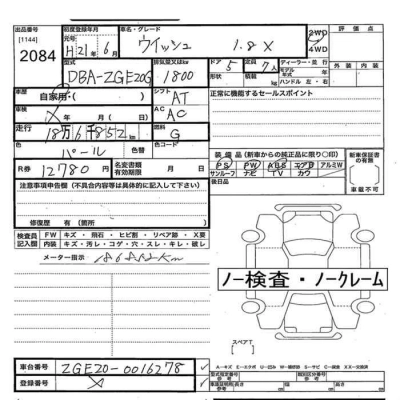 出品番号 初度登録年月 車名・グレード 評価点
[1144] 元号 H 21年 6月 ウィッシュ 1.8X 2WD
2084 4WD
型式 排気量又は積載 ドア 形状 定員 外装 内装
DBA-ZGE20G 1800 5 7人
車歴 自家用 シフト AT 正常に機能するセールスポイント
車検 X 年 月 日 AC AC
走行 18万6千852km 燃料 G
色 パール 色替 色コード
R券 12780円 名変書類有効期限 年 月 日
装備品(新車からの純正品に限り〇印)
PS PW ABS エアB アルミW
サンルーフ ナビ TV カワ
新車保証書の有無 有・無
注意事項申告欄(不具合内容等は具体的に記入して下さい)
後日品
修復歴 有(箇所 )
検査員記入欄 FW キズ・飛石・ヒビ割・リペア跡・X要
内装 キズ・汚レ・コゲ・穴・スレ・キレ・破レ
メーター指示 186852km
ノー検査・ノークレーム
スペアT
車台番号 ZGE20-0016278
登録番号 X